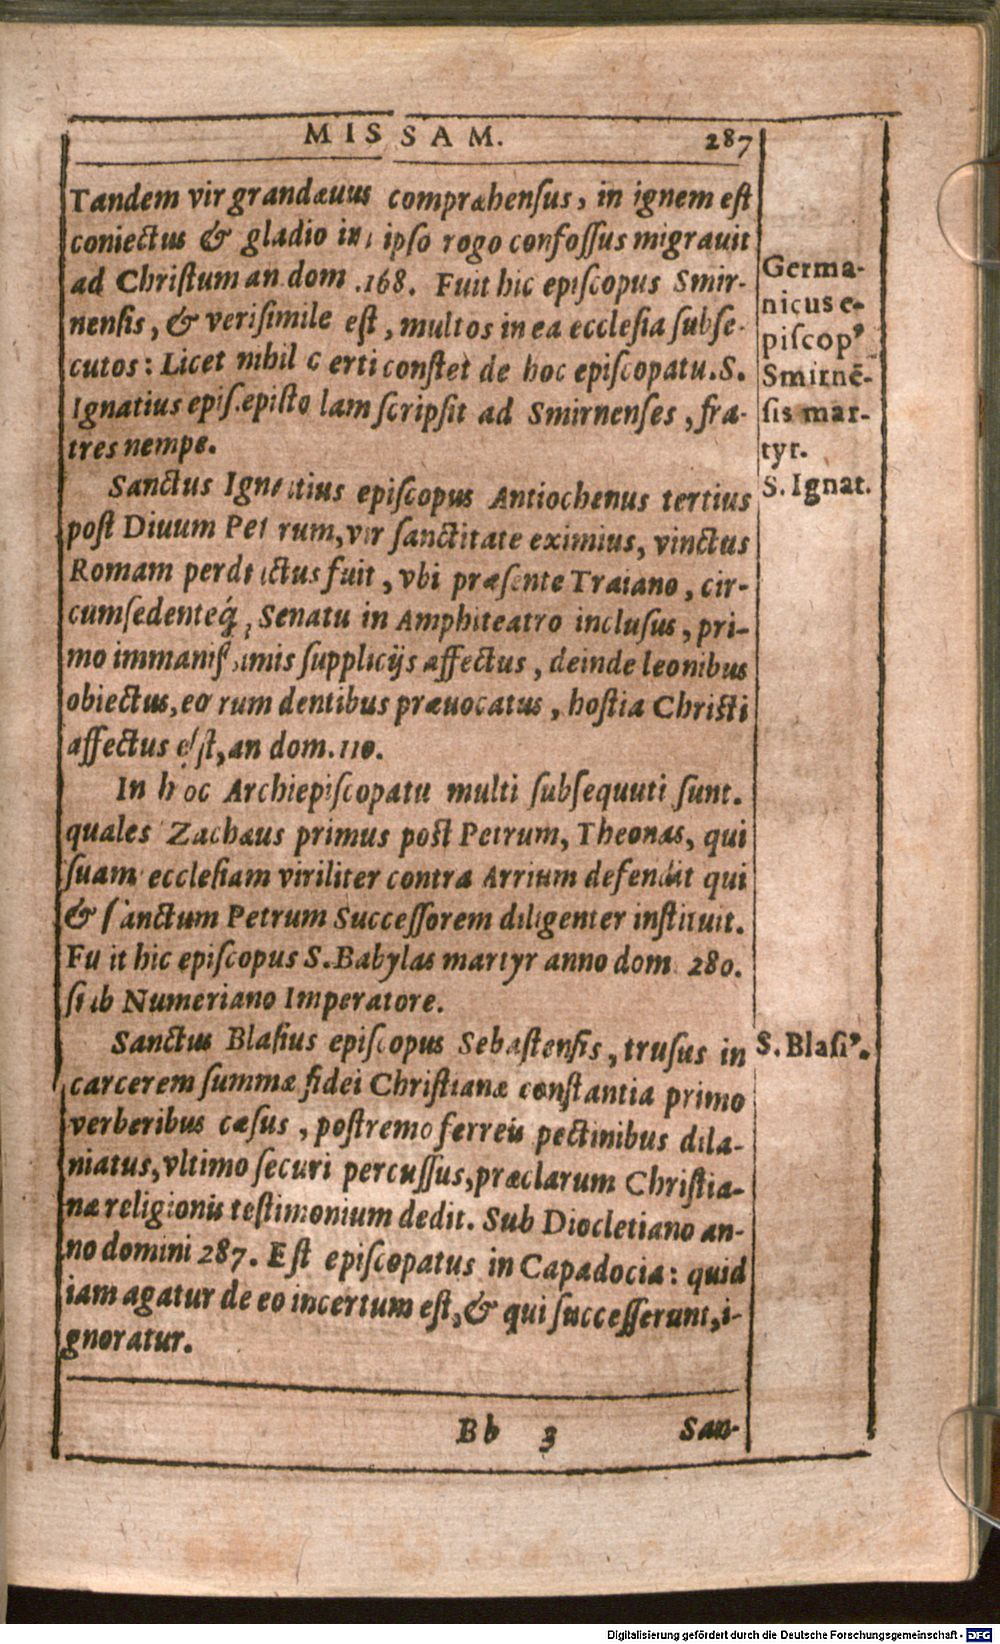 MISSAM. 287
Tandem vir grandæuus compræhensus, in ignem est
coniectus & gladio in ipso rogo confossus migrauit
ad Christum an dom .168. Fuit hic episcopus Smir-
nensis, & verisimile est, multos in ea ecclesia subse-
cutos: Licet nihil certi constet de hoc episcopatu. S.
Ignatius epis. epistolam scripsit ad Smirnenses, fra-
tres nempe.
Germa-
nicus e-
piscopꝰ
Smirnē-
sis mar-
tyr.
Sanctus Ignatius episcopus Antiochenus tertius
post Diuum Petrum, vir sanctitate eximius, vinctus
Romam perductus fuit, vbi præsente Traiano, cir-
cumsedenteq́; Senatu in Amphiteatro inclusus, pri-
mo immanissimis supplicijs affectus, deinde leonibus
obiectus, eorum dentibus præuocatus, hostia Christi
affectus est, an dom. 110.
S. Ignat.
In hoc Archiepiscopatu multi subsequuti sunt.
quales Zachæus primus post Petrum, Theonas, qui
suam ecclesiam viriliter contra Arrium defendit qui
& sanctum Petrum Successorem diligenter instituit.
Fuit hic episcopus S. Babylas martyr anno dom 280.
sub Numeriano Imperatore.
Sanctus Blasius episcopus Sebastensis, trusus in
carcerem summæ fidei Christianæ constantia primo
verberibus cæsus, postremo ferreis pectinibus dila-
niatus, vltimo securi percussus, præclarum Christia-
næ religionis testimonium dedit. Sub Diocletiano an-
no domini 287. Est episcopatus in Capadocia: quid
iam agatur de eo incertum est, & qui successerunt, i-
gnoratur.
S. Blasiꝰ.
Bb 3 San-
Digitalisierung gefördert durch die Deutsche Forschungsgemeinschaft - DFG